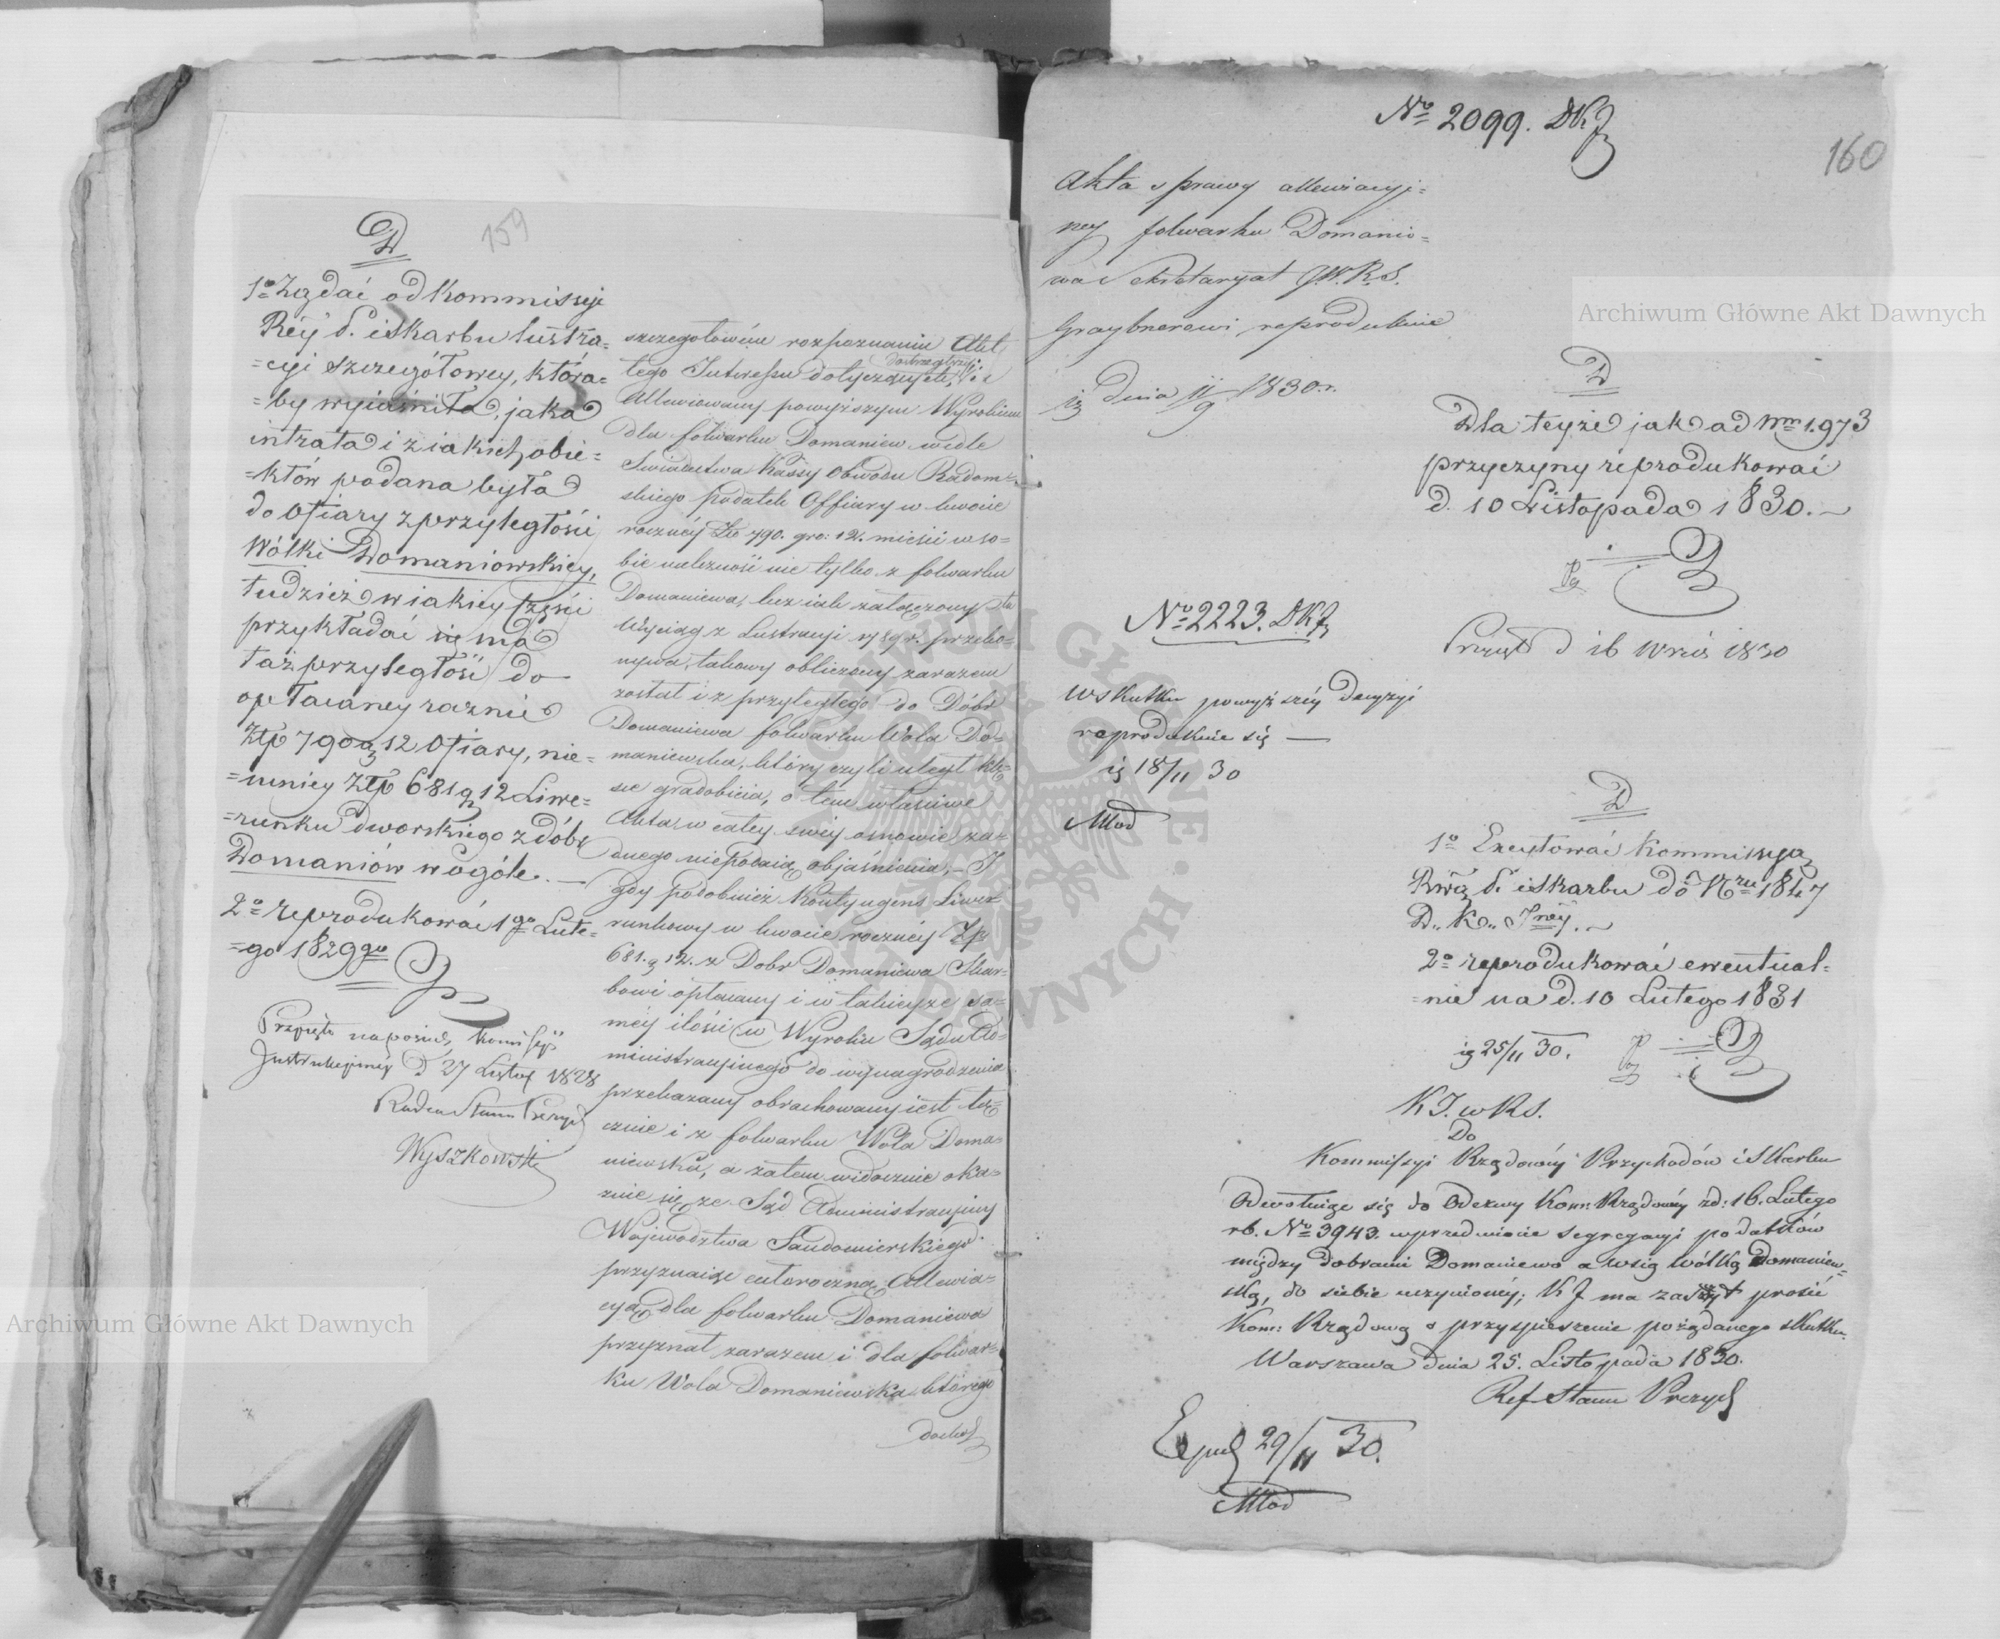 159
D
1º Żądać od Kommissyi
Rey P. i Skarbu lustra=
=cyi szczegółowey, która=
=by wyiaśniła, jaka
intrata i z iakich obie=
=któw podana była
do Ofiary z przyległości
Wólki Domaniowskiey,
tudzież w iakiey części
przykładać się ma
taż przyległość do
opłacaney rocznie
Złp 790 g 12 Ofiary, nie=
=mniey Złp 681 g 12 Liwe=
=runku dworskiego z dóbr
Domaniów w ogóle. —
2º reprodukować 1go Lute=
=go 1829go
Przyięto na posied. Komissyi
Instrukcyinéy D 27 Listop 1828
Radca Stanu Prezyd
Wyszkowski
szczegółowém rozpoznaniu Akt
tego Interessu dotyczących, dostrzegłszy: iż
Allewiowany powyższym Wyrokiem
dla folwarku Domaniew wedle
Świadectwa Kassy Obwodu Radom=
skiego podatek Offiary w kwocie
roczney Zł 790. gro: 12. mieści w so=
bie należność nie tylko z folwarku
Domaniewa, lecz iak załączony tu
Wyciąg z Lustracyi 1789 r. przeko=
nywa, takowy obliczony zarazem
został i z przyległego do Dóbr
Domaniewa folwarku Wola Do=
maniewska, który czyli uległ klę=
sce gradobicia, o tem właściwe
Akta w całey swéy osnowie ża=
dnego nie podaią objaśnienia. — I
gdy podobnież Kontyngens Liwe=
runkowy w kwocie rocznéy Zp
681. g 12. z Dobr Domaniewa Skar=
bowi opłacany i w takieyże sa=
méy ilości w Wyroku Sądu Ad=
ministracyinego do wynagrodzenia
przekazany obrachowany iest łą=
cznie i z folwarku Wola Doma=
niewska, a zatem widocznie oka=
zuie się że Sąd Administracyiny
Województwa Sandomierskiego
przyznaiąc całoroczną Allewia=
cyą dla folwarku Domaniewa
przyznał zarazem i dla folwar=
ku Wola Domaniewska, którego
doched
160
Nº 2099. DKJ
Akta sprawy allewiacyj=
ney folwarku Domanie=
wa Sekretaryat
Graybnerowi reprodukuie
dnia 11/9 1830. r.
D
Dla teyże jak ad Nrm 1973
przyczyny reprodukować
d. 10 Listopada 1830. —
Przyięto d 16 Wrześ 1830
Nº 2223. DKJ
W skutku powyższéy decyzyi
reprodukuie się —
18/11 30
Młod
D
1º Excytować Kommissyą
Rwą P. i Skarbu do Nru 1847
D. K. Jnéy. —
2º reprodukować ewentual=
=nie na d. 10 Lutego 1831
25/11 30.
K J. w K S.
Do
Kommissyi Rządowéy Przychodów i Skarbu
Odwołuiąc się do Odezwy Kom: Rządowéy z d: 16. Lutego
r b. Nº 3943. w przedmiocie segregacyi podatków
między dobrami Domaniewo a wsią Wólką Domaniew=
ską, do siebie uczynionéy; K J ma zaszczyt prosić
Kom: Rządową o przyspieszenie pożądanego skutku.
Warszawa dnia 25. Listopada 1830.
Ref Stanu Prezyd
Exped 29/11 30.
Młod
Archiwum Główne Akt Dawnych
Archiwum Główne Akt Dawnych
ARCHIWUM GŁÓWNE AKT DAWNYCH